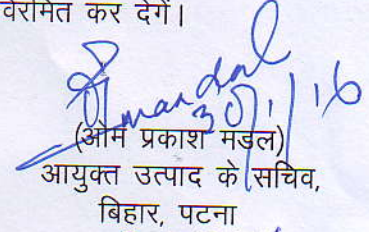 वेरमित कर देगें।
mandal
30/1/16
(ओम प्रकाश मडल)
आयुक्त उत्पाद के सचिव,
बिहार, पटना